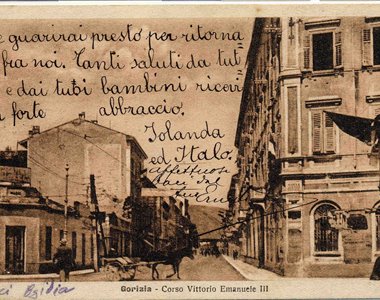 e guarirai presto per ritorna
fra noi. Tanti saluti da tut
e dai tubi bambini ricevi
n forte abbraccio.
Jolanda
ed Italo.
affettuosi
baci da
Gorizia - Corso Vittorio Emanuele III